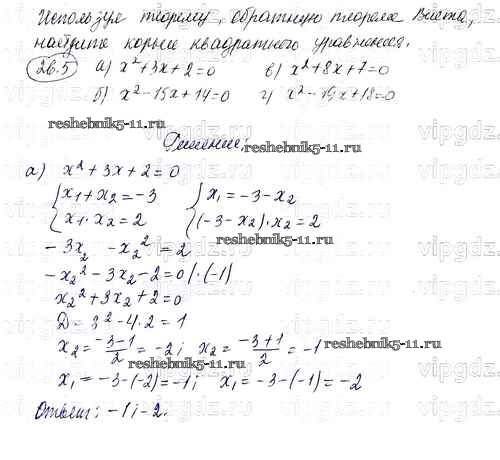 Используя теорему, обратную теореме Виета,
найдите корни квадратного уравнения.
26.5 а) x²+3x+2=0 в) x²+8x+7=0
б) x²-15x+14=0 г) x²-19x+18=0
reshebnik5-11.ru reshebnik5-11.ru
Решение:
а) x²+3x+2=0
{x₁+x₂=-3 {x₁=-3-x₂
{x₁·x₂=2 {(-3-x₂)·x₂=2
reshebnik5-11.ru
-3x₂ -x₂²=2
-x₂²-3x₂-2=0 |·(-1)
x₂²+3x₂+2=0
D=3²-4·2=1
x₂=(-3-1)/2=-2; x₂=(-3+1)/2=-1
reshebnik5-11.ru
x₁=-3-(-2)=-1; x₁=-3-(-1)=-2
Ответ: -1; -2.
vipgdz.ru